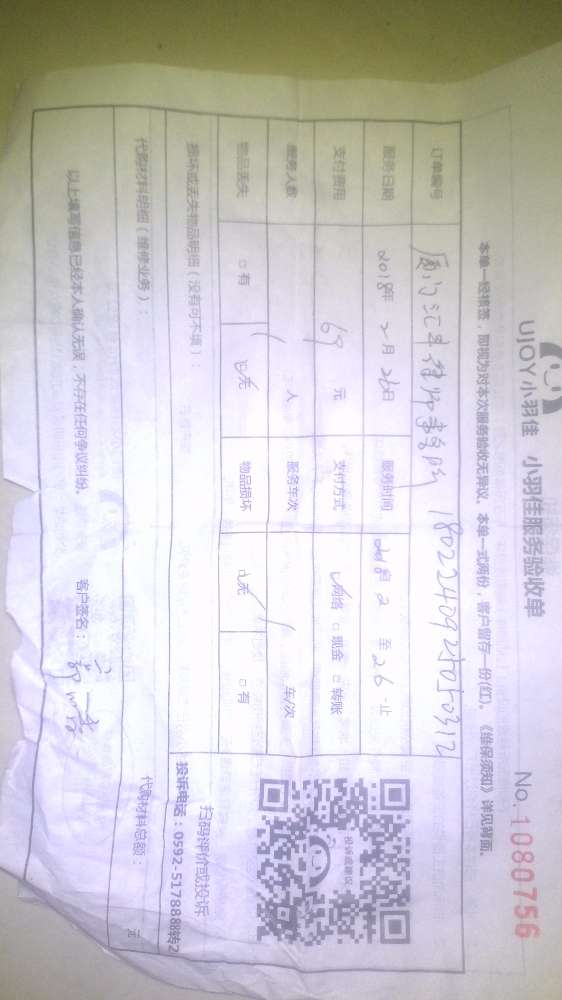 UJOY小羽佳 小羽佳服务验收单
No.1080756
本单一经填签，即视为对本次服务验收无异议。本单一式两份，客户留存一份(红)。《维保须知》详见背面。
订单编号 1802240925050312
服务日期 2018年 2月 26日 服务时间 2018 自 2 至 26 止
支付费用 69 元 支付方式 网络 □现金 □转账
服务人数 1 人 服务车次 1 车/次
物品丢失 □有 ☑无 物品损坏 ☑无 □有
损坏或丢失物品明细（没有可不填）：
扫码评价或投诉
投诉电话：0592-5178888转2
投诉或建议
代购材料明细（维修业务）：
代购材料总额： 元
以上填写信息已经本人确认无误，不存在任何争议纠纷。 客户签名：